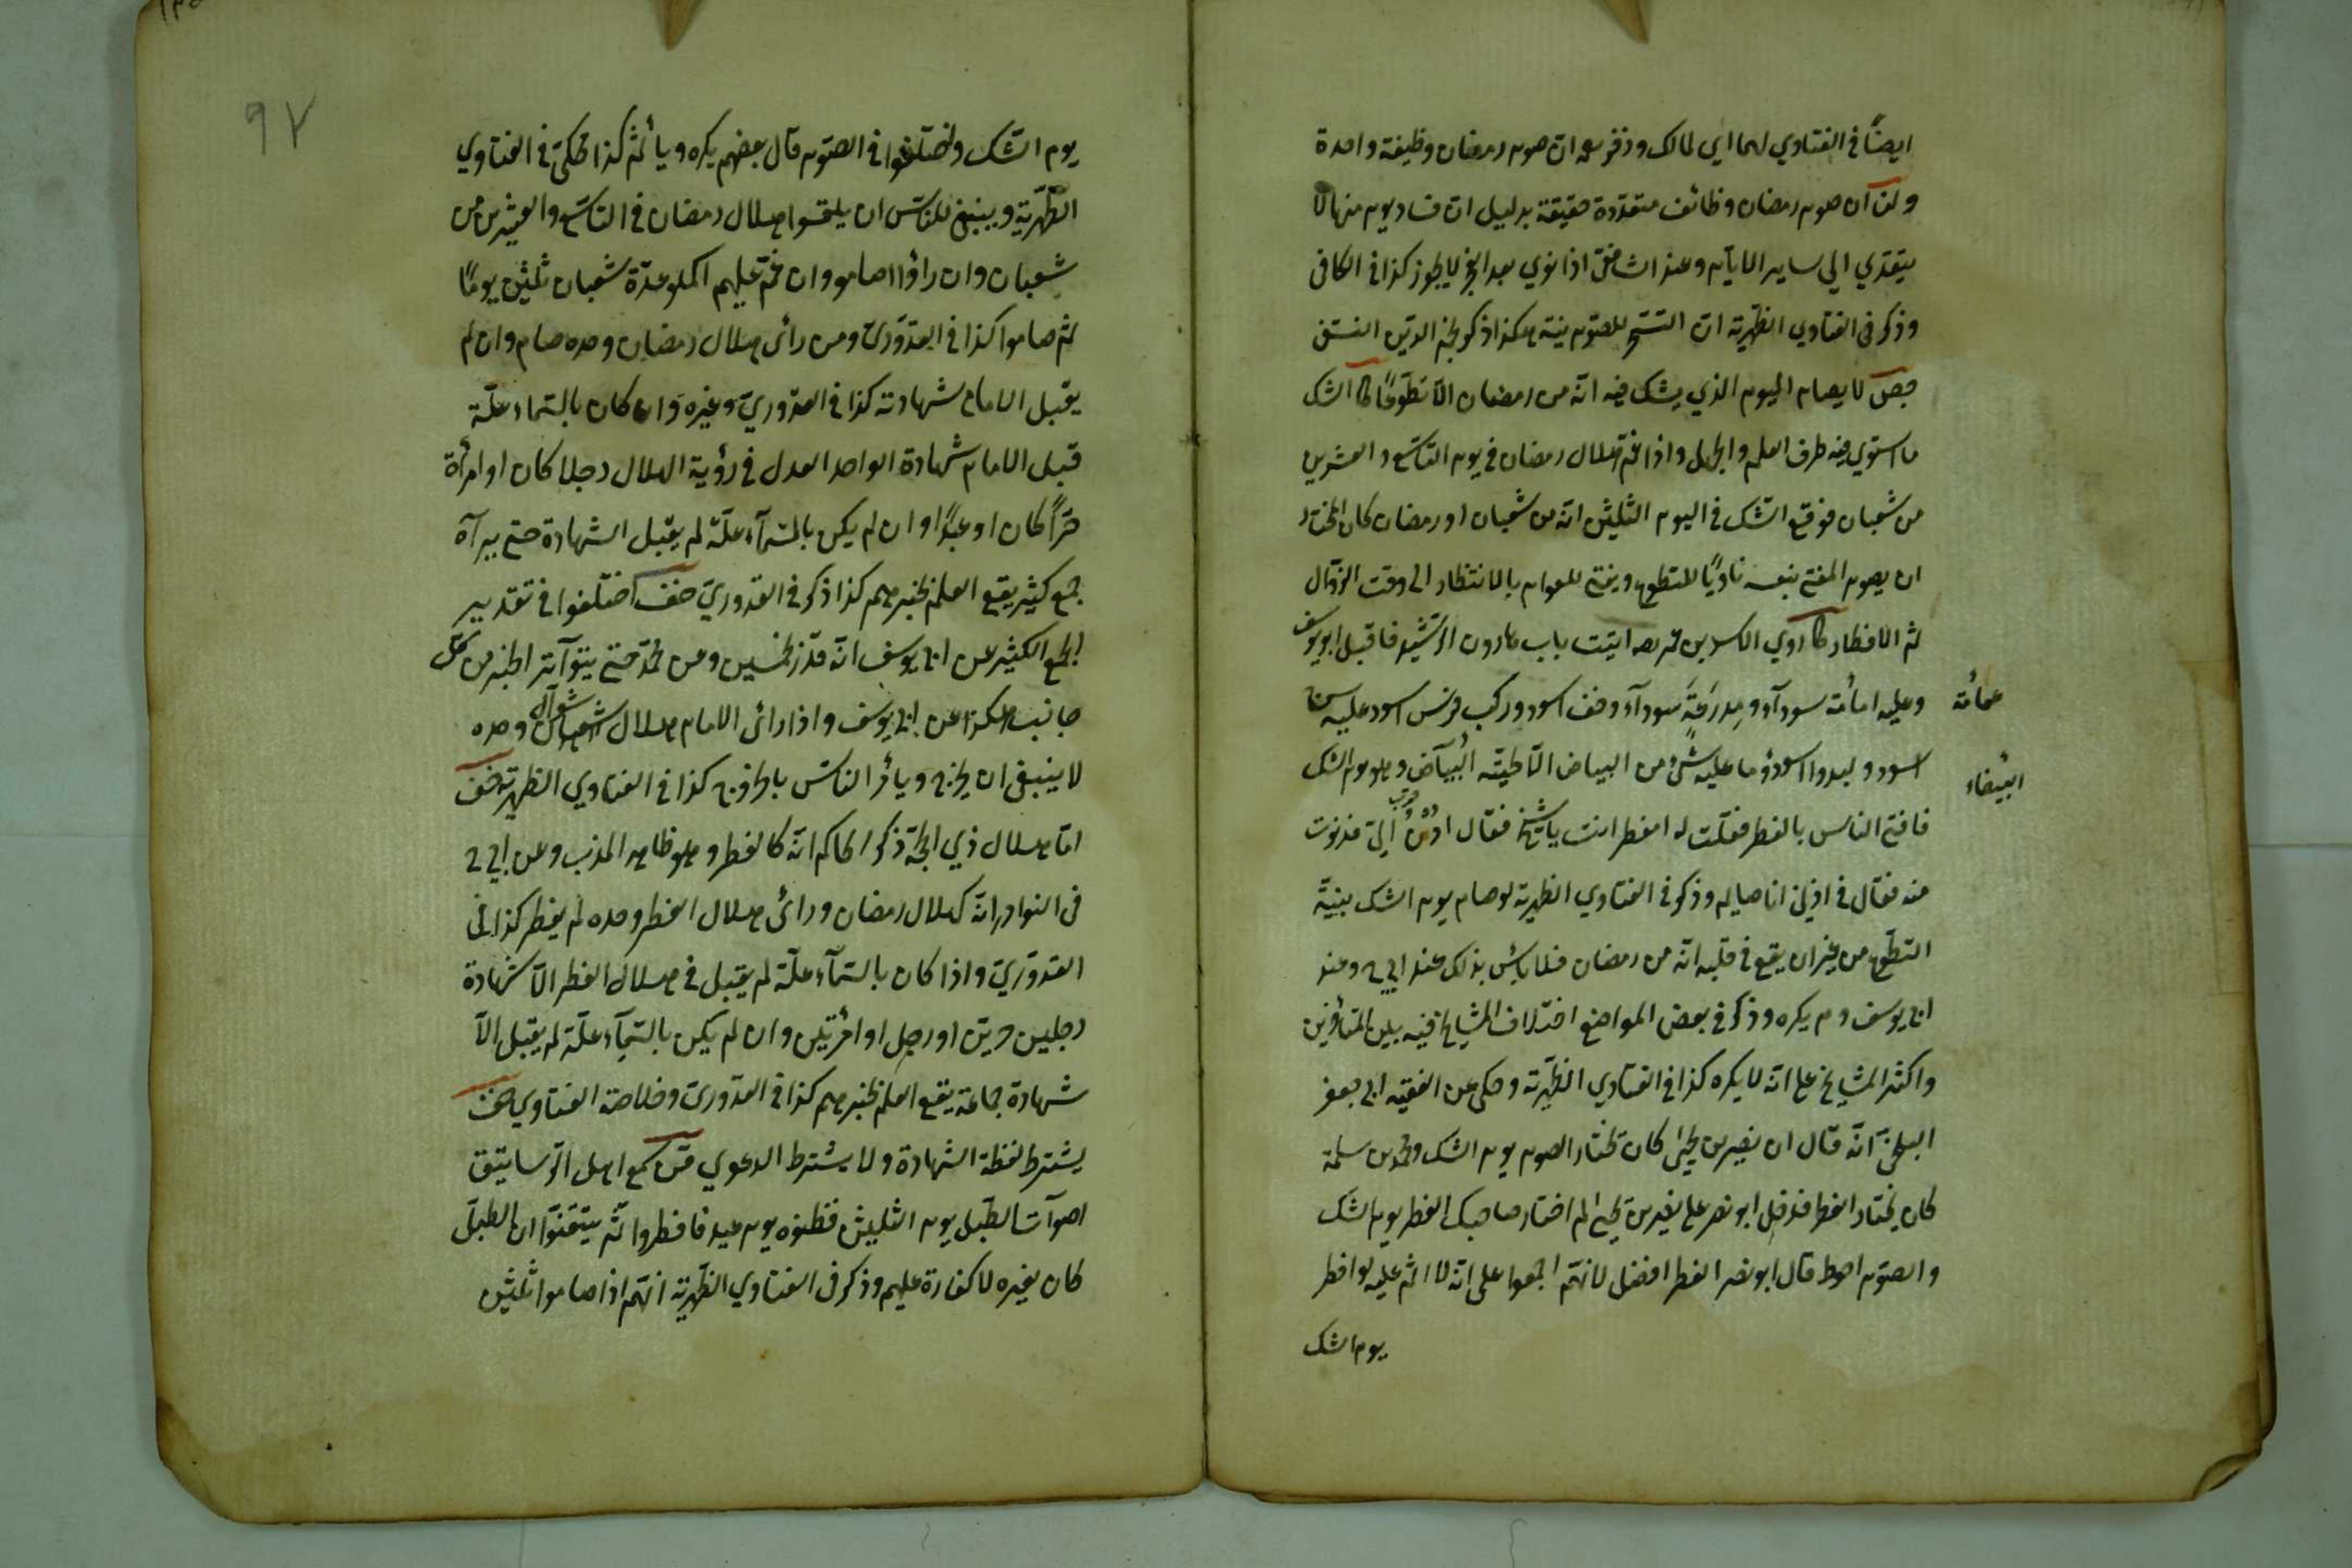 ايضًا في الفتاوي لهما اي لمالك وزفر رحمه ان صوم رمضان وظيفة واحدة
ولنا ان صوم رمضان وظائف متعدّدة حقيقة بدليل ان فساد يوم منها لا
يتعدّي الي ساير الايآم وعند الشافعيّ اذا نوي بعد الفجر لا يجوز كذا في الكافي
وذكر في الفتاوي الظهيرية ان التسحّر للصوم نيّة هكذا ذكر نجم الدين النسفي
لا يصام اليوم الذي يشك فيه انّه من رمضان الّا تطوّعًا الشك
ما استوي فيه طرف العلم والجهل واذا غمّ هلال رمضان في يوم التاسع والعشرين
من شعبان فوقع الشك في اليوم الثلثين انّه من شعبان او رمضان كان المختار
ان يصوم المفتي بنفسه ناويًا للتطوع ويفتي للعوام بالانتظار الى وقت الزوال
ثم الافطار كما روي اتيت باب هارون الرشيد فاقبل ابو يوسف
وعليه امائمة سودآء ومدرعة سودآء وخف اسود وركب فرس اسود عليه
عمائمة
اسود و اسود وما عليه شئ من البياض الّا لحيته البيآض وهو يوم الشك
ابيضاء
فافتي الناس بالفطر فقلت له امفطر انت يا شيخ فقال ادنُ اليّ فدنوت
منه فقال في اذني انا صايم وذكر في الفتاوي الظهيرية لو صام يوم الشك بنيّة
التطوع من غير ان يقع في قلبه انّه من رمضان فلا بأس بذلك عند ابي ح وعند
ابي يوسف و م يكره وذكر في بعض المواضع اختلاف المشايخ فيه بين المتأخرين
واكثر المشايخ علي انّه لا يكره كذا في الفتاوي الظهيرية وحكي عن الفقيه ابي جعفر
البلخيّ انّه قال ان نصير بن يحيٰ كان يختار الصوم يوم الشك ومحمد بن سلمة
كان يختار الفطر فدخل ابو نصر علي نصير بن يحي لم اختار صاحبك الفطر يوم الشك
والصوم احوط قال ابو نصر الفطر افضل لانهم اجمعوا على انّه لا اثم عليه لو افطر
يوم الشك
٩٢
يوم الشك واختلفوا في الصوم قال بعضهم يكره ويأثم كذا حكي في الفتاوي
الظهيرية وينبغي للناس ان يلتمسوا هلال رمضان في التاسع والعشرين من
شعبان وان رأوا صاموا وان غمّ عليهم اكملوا عدّة شعبان ثلثين يومًا
ثم صاموا كذا في القدوري ومن رأى هلال رمضان وحده صام وان لم
يقبل الامام شهادته كذا في القدوريّ وغيره وان كان بالسّماء علّة
قبل الامام شهادة الواحد العدل في رؤية الهلال رجلا كان او امرأة
حرًا كان او عبدًا وان لم يكن بالسّمآء علّة لم يقبل الشهادة حتي يرآه
جمع كثير يقع العلم بخبرهم كذا ذكر في القدوريّ اختلفوا في تقدير
الجمع الكثير عن ابي يوسف انّه قدّر بخمسين وعن محمّد حتي يتوآتر الخبر من كلّ
جانب هكذا عن ابي يوسف واذا رائ الامام هلال شعبان وحده
شوال
لا ينبغي ان يخرج ويأمر الناس بالخروج كذا في الفتاوي الظهيرية
امّا هلال ذي الحجّة ذكر الحاكم انّه كالفطر وهو ظاهر المذهب وعن ابي ح
في النوادر انّه كهلال رمضان ورائ هلال الفطر وحده لم يفطر كذا في
القدوريّ واذا كان بالسّمآء علّة لم يقبل في هلال الفطر الّا شهادة
رجلين حرين او رجل او امرأتين وان لم يكن بالسّمآء علّة لم يقبل الّا
شهادة جماعة يقع العلم بخبرهم كذا في القدوريّ وخلاصة الفتاوي
يشترط لفظة الشهادة ولا يشترط الدعوي سمع اهل الرساتيق
اصوآت الطبل يوم الثلثين فظنوه يوم عيد فافطروا ثم يتقنوا ان الطبل
كان لغيره لا كفارة عليهم وذكر في الفتاوي الظهيرية انهم اذا صاموا ثلثين